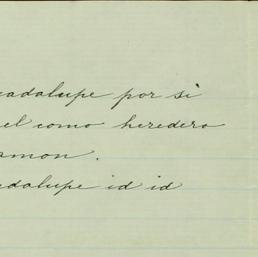 adalupe por si
el como heredero
amon.
adalupe id id